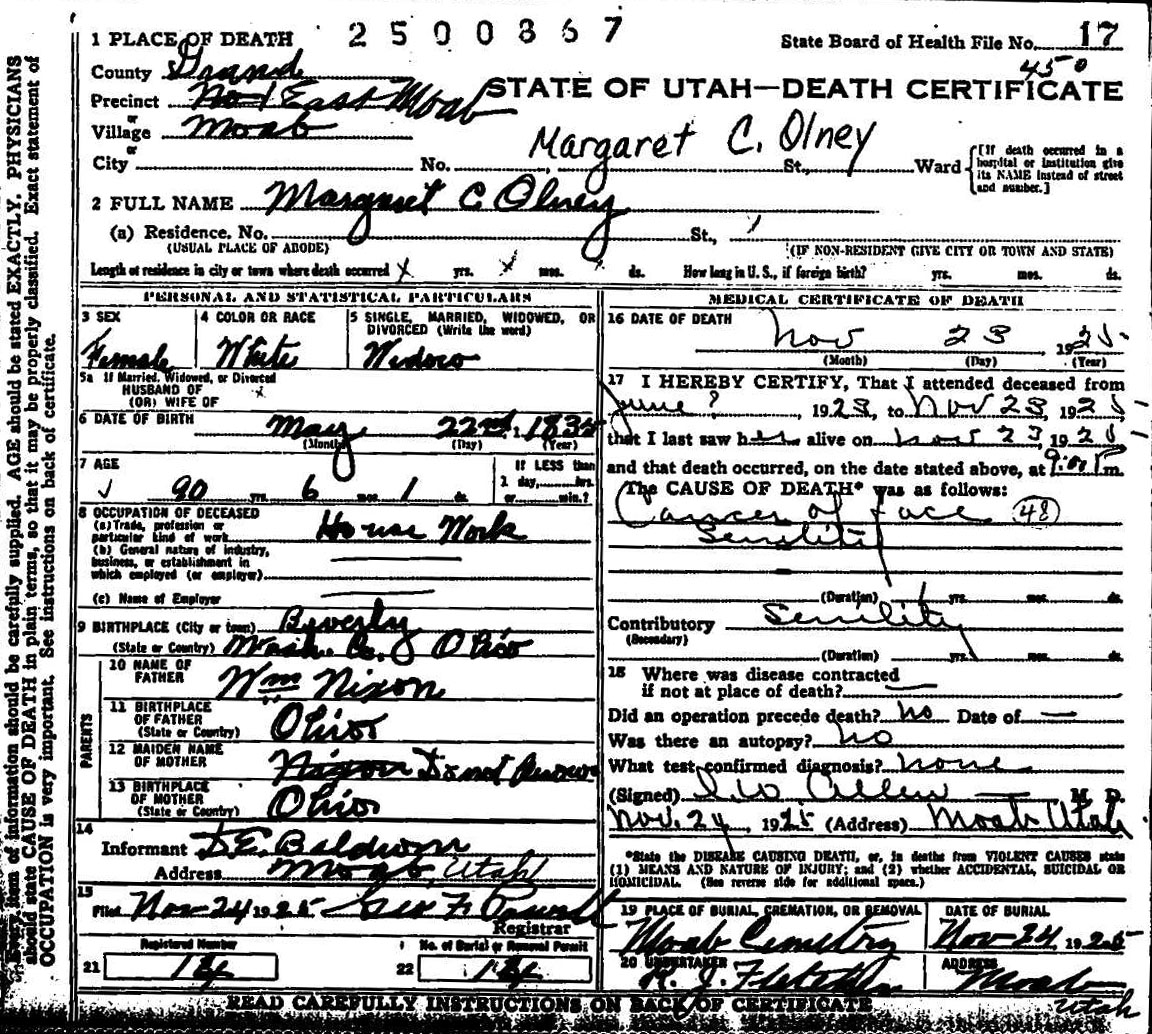 1 PLACE OF DEATH 2500867 State Board of Health File No. 17
450
County Grand
STATE OF UTAH—DEATH CERTIFICATE
Precinct No 1 East Moab
or
Village Moab
or
Margaret C. Olney
City No. St., Ward [If death occurred in a hospital or institution give its NAME instead of street and number.]
2 FULL NAME Margaret C Olney
(a) Residence, No. St.,
(USUAL PLACE OF ABODE) (IF NON-RESIDENT GIVE CITY OR TOWN AND STATE)
Length of residence in city or town where death occurred x yrs. x mos. ds. How long in U. S., if foreign birth? yrs. mos. ds.
PERSONAL AND STATISTICAL PARTICULARS
3 SEX 4 COLOR OR RACE 5 SINGLE, MARRIED, WIDOWED, OR
DIVORCED (Write the word)
Female White Widow
5a If Married, Widowed, or Divorced
HUSBAND OF
(OR) WIFE OF
6 DATE OF BIRTH May 22nd, 1835
(Month) (Day) (Year)
7 AGE If LESS than
1 day, hrs.
90 yrs. 6 mos. 1 ds. or min.?
8 OCCUPATION OF DECEASED
(a) Trade, profession or
particular kind of work House Work
(b) General nature of industry,
business, or establishment in
which employed (or employer)
(c) Name of Employer
9 BIRTHPLACE (City or town) Beverly
(State or Country) Wash. Co. Ohio
PARENTS
10 NAME OF
FATHER Wm Nixon
11 BIRTHPLACE
OF FATHER
(State or Country) Ohio
12 MAIDEN NAME
OF MOTHER Nixon Do not Know
13 BIRTHPLACE
OF MOTHER
(State or Country) Ohio
14
Informant D.E. Baldwin
Address Moab, Utah
15
Filed Nov-24 1925 Geo F. Powell
Registrar
Registered Number No. of Burial or Removal Permit
21 22
MEDICAL CERTIFICATE OF DEATH
16 DATE OF DEATH
Nov 23 1925
(Month) (Day) (Year)
17 I HEREBY CERTIFY, That I attended deceased from
June?, 1923, to Nov 23, 1925
that I last saw her alive on Nov 23 1925
and that death occurred, on the date stated above, at 9:00 P m.
The CAUSE OF DEATH* was as follows:
Cancer of face 48
Senility
(Duration) yrs. mos. ds.
Contributory Senility
(Secondary)
(Duration) yrs. mos. ds.
18 Where was disease contracted
if not at place of death?
Did an operation precede death? no Date of —
Was there an autopsy? no
What test confirmed diagnosis? none
(Signed) I W Allen M. D.
Nov. 24, 1925 (Address) Moab Utah
*State the DISEASE CAUSING DEATH, or, in deaths from VIOLENT CAUSES state
(1) MEANS AND NATURE OF INJURY; and (2) whether ACCIDENTAL, SUICIDAL OR
HOMICIDAL. (See reverse side for additional space.)
19 PLACE OF BURIAL, CREMATION, OR REMOVAL DATE OF BURIAL
Moab Cemetry Nov-24 1925
20 UNDERTAKER ADDRESS
H. J. Fletcher Moab
Utah
READ CAREFULLY INSTRUCTIONS ON BACK OF CERTIFICATE
Every item of information should be carefully supplied. AGE should be stated EXACTLY. PHYSICIANS
should state CAUSE OF DEATH in plain terms, so that it may be properly classified. Exact statement of
OCCUPATION is very important. See instructions on back of certificate.